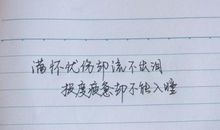 满怀忧伤却流不出泪
极度疲惫却不能入睡